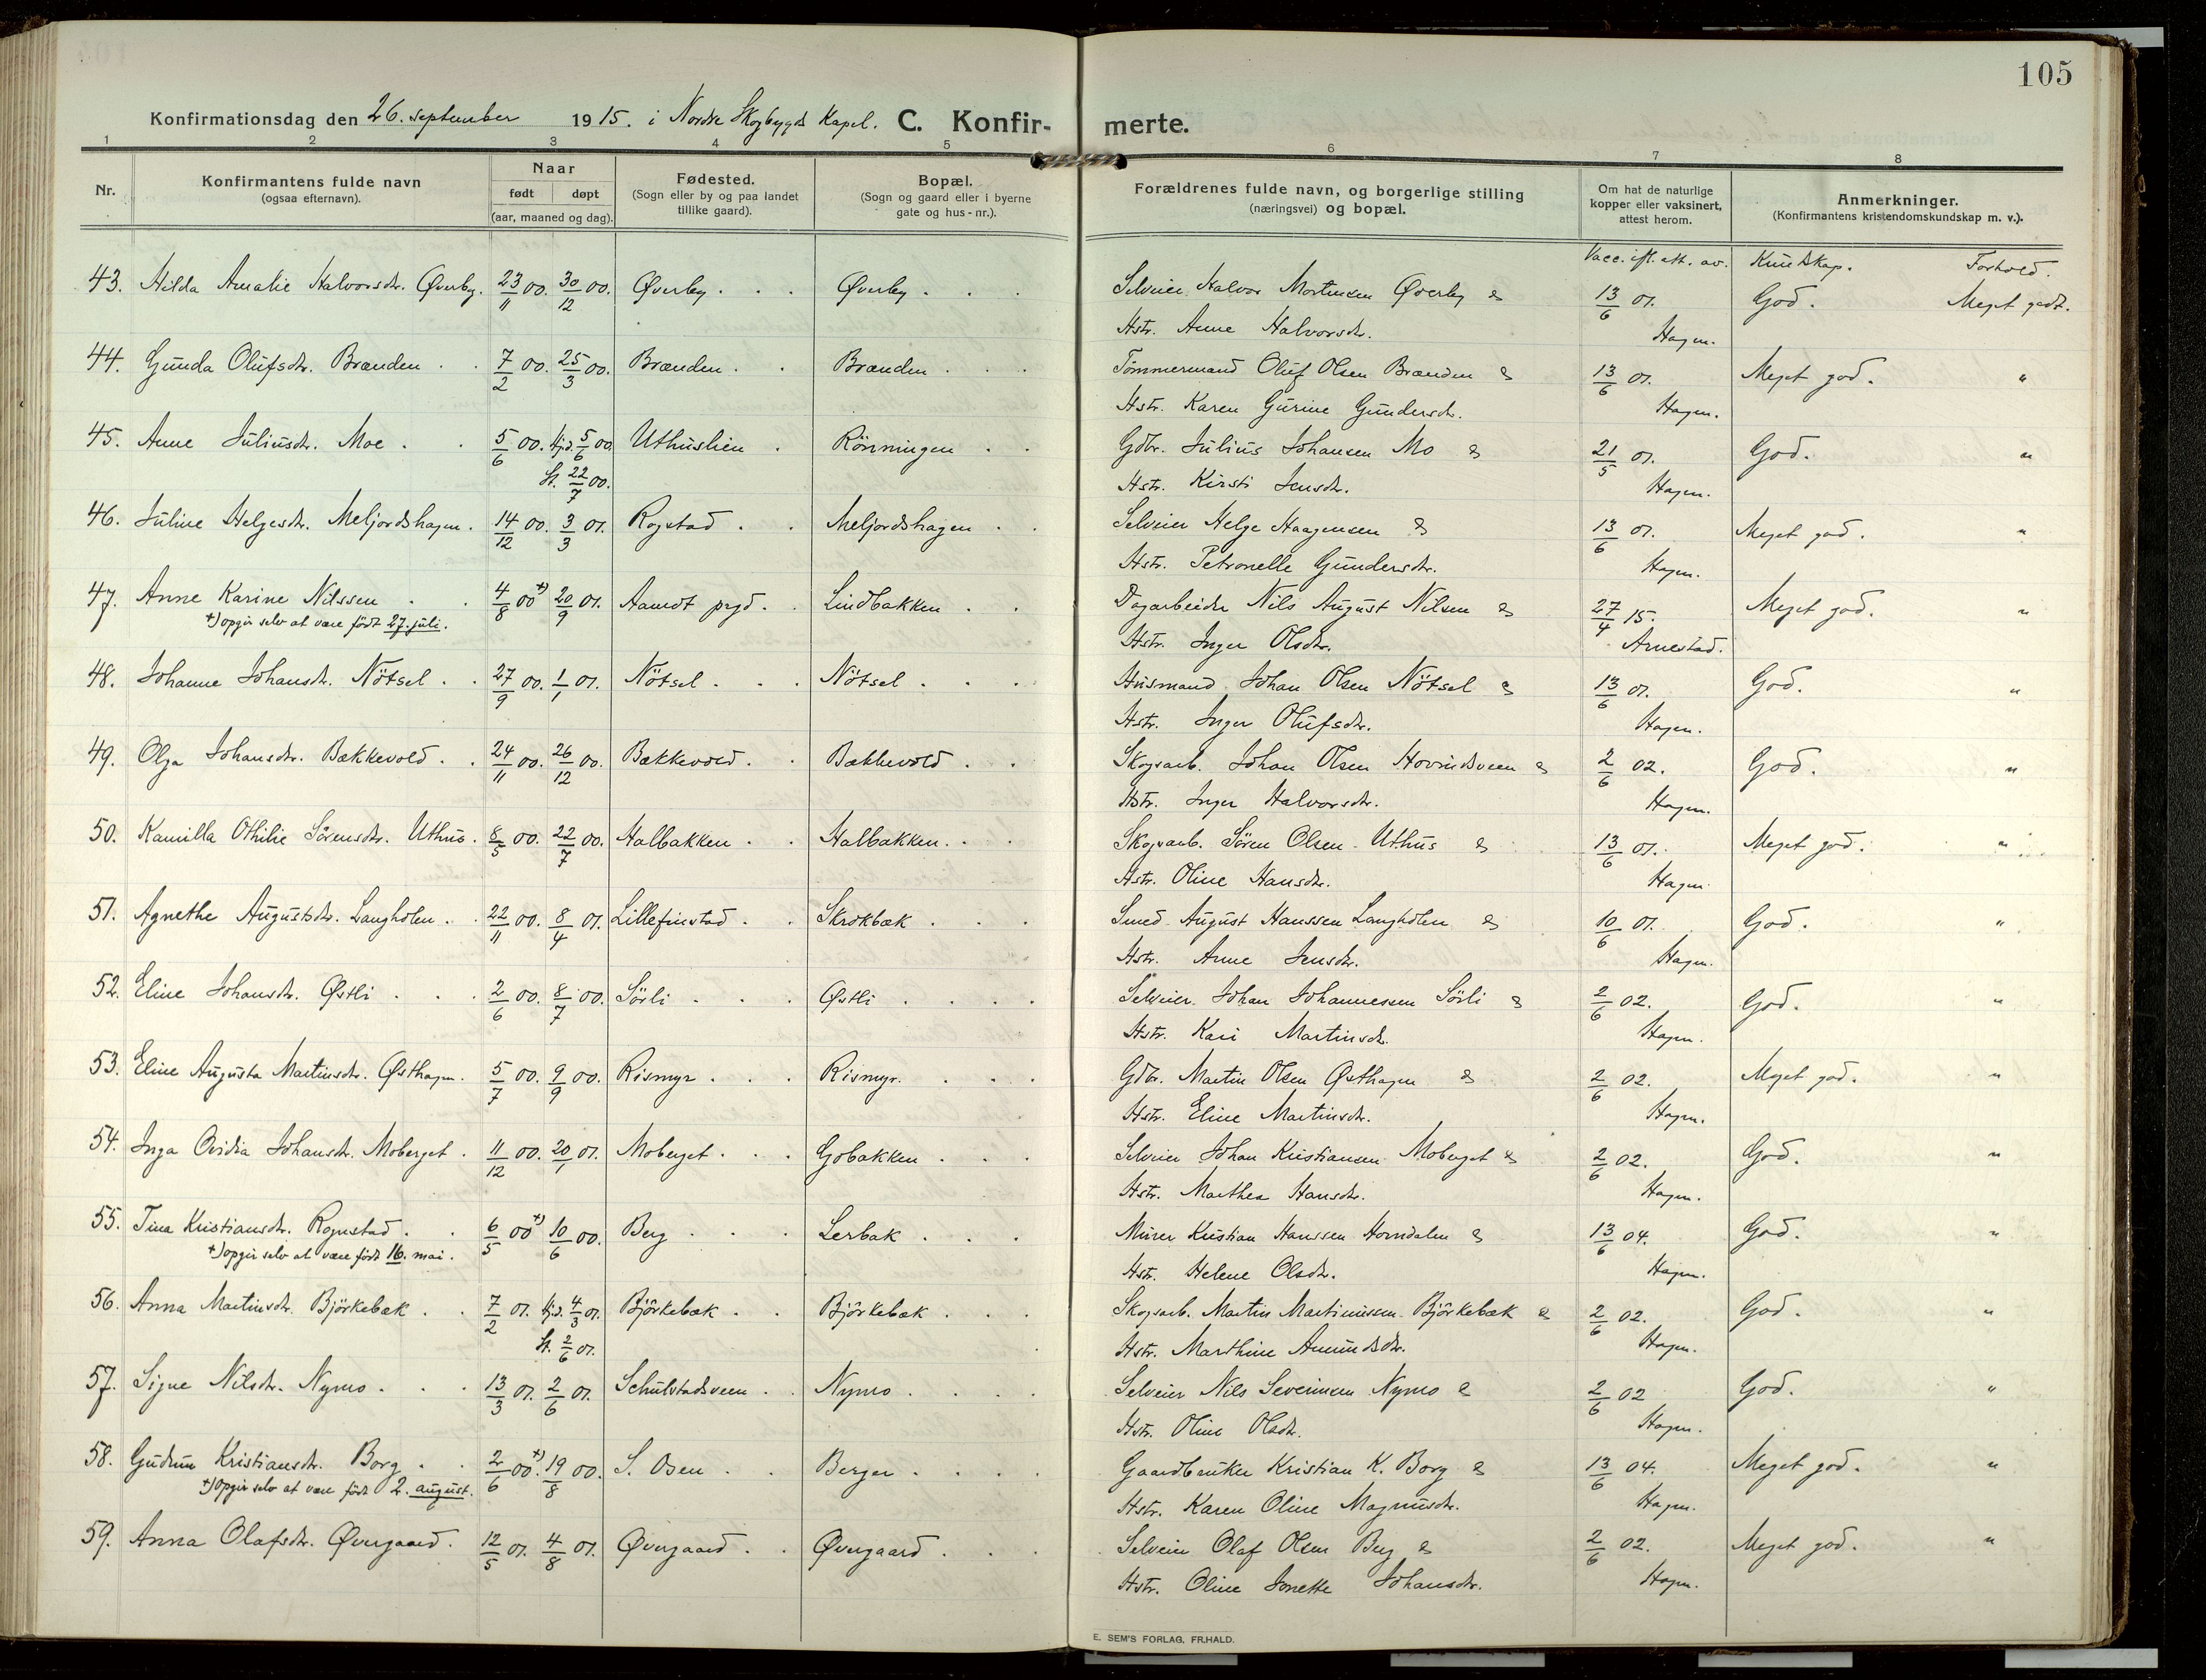 105
Konfirmationsdag den 26. september 1915. i Nordre Skogbygds Kapel. C. Konfir-merte.
1 2 3 4 5 6 7 8
Nr. Konfirmantens fulde navn (ogsaa efternavn). Naar født døpt (aar, maaned og dag). Fødested. (Sogn eller by og paa landet tillike gaard). Bopæl. (Sogn og gaard eller i byerne gate og hus-nr.). Forældrenes fulde navn, og borgerlige stilling (næringsvei) og bopæl. Om hat de naturlige kopper eller vaksinert, attest herom. Anmerkninger. (Konfirmantens kristendomskundskap m. v.).
Vacc. ifl. att. av. Kundskap. Forhold.
43. Hilda Amalie Halvorsdr. Øverby. 23/11 00. 30/12 00. Øverby. Øverby. Selveier Halvor Mortensen Øverby & 13/6 01. God. Meget godt.
Hstr. Anne Halvorsdr. Hagen.
44. Gunda Olufsdr. Brænden. 7/2 00. 25/3 00. Brænden. Brænden. Tömmermand Oluf Olsen Brænden & 13/6 01. Meget god. "
Hstr. Karen Gurine Gundersdr. Hagen.
45. Anne Juliusdr. Moe. 5/6 00. hjd. 5/6 00. Uthuslien Rönningen Gdbr. Julius Johansen Mo & 21/5 01. God. "
St. 22/7 00. Hstr. Kirsti Jensdr. Hagen.
46. Juline Helgesdr. Meljordshagen. 14/12 00. 3/3 01. Rogstad Meljordshagen Selveier Helge Haagensen & 13/6 01. Meget god. "
Hstr. Petronelle Gundersdr. Hagen.
47. Anne Karine Nilssen 4/8 00 +) 20/9 01. Aamot prgd. Lindbakken Dagarbeider Nils August Nilsen & 27/4 15. Meget god. "
+) opgir selv at være født 27. juli. Hstr. Inger Olsdr. Arnestad.
48. Johanne Johansdr. Nötsel. 27/9 00. 1/1 01. Nötsel. Nötsel. Husmand Johan Olsen Nötsel & 13/6 01. God. "
Hstr. Inger Olufsdr. Hagen.
49. Olga Johansdr. Bækkevold. 24/11 00. 26/12 00. Bækkevold. Bækkevold. Skogsarb. Johan Olsen Hovindsveen & 2/6 02. God. "
Hstr. Inger Halvorsdr. Hagen.
50. Kamilla Othilie Sörensdr. Uthus. 8/5 00. 22/7 00. Halbakken Halbakken. Skogsarb. Sören Olsen Uthus & 13/6 01. Meget god. "
Hstr. Oline Hansdr. Hagen
51. Agnethe Augustsdr. Langholen. 22/11 00. 8/4 01. Lillefinstad. Skrokbæk Smed August Hanssen Langholen & 10/6 01. God. "
Hstr. Anne Jensdr. Hagen.
52. Eline Johansdr. Østli 2/6 00. 8/7 00. Sörli Østli Selveier Johan Johannessen Sörli & 2/6 02. God. "
Hstr. Kari Martinsdr. Hagen.
53. Eline Augusta Martinsdr. Østhagen. 5/7 00. 9/9 00. Rismyr Rismyr. Gdbr. Martin Olsen Østhagen & 2/6 02. Meget god. "
Hstr. Eline Martinsdr. Hagen.
54. Inga Ovidia Johansdr. Moberget. 11/12 00. 20/1 01. Moberget. Gobakken Selveier Johan Kristiansen Moberget & 2/6 02. God. "
Hstr. Marthea Hansdr. Hagen.
55. Tina Kristiansdr. Rognstad. 6/5 00 +) 10/6 00. Berg Lerbak Murer Kristian Hanssen Horndalen & 13/6 04. God. "
+) opgir selv at være født 16. mai. Hstr. Helene Olsdr. Hagen.
56. Anna Martinsdr. Björkebæk 7/2 01. hjd. 4/3 01. Björkebæk Björkebæk Skogsarb. Martin Martinussen Björkebæk & 2/6 02. God. "
St. 2/6 01. Hstr. Marthine Amundsdr. Hagen.
57. Signe Nilsdr. Nymo. 13/3 01. 2/6 01. Schulstadsveen Nymo Selveier Nils Severinsen Nymo & 2/6 02 God. "
Hstr. Oline Olsdr. Hagen.
58. Gudrun Kristiansdr. Borg 2/6 00 +) 19/8 00. S. Osen Berger Gaardbruker Kristian K. Borg & 13/6 04. Meget god. "
+) Opgir selv at være født 2. august. Hstr. Karen Oline Magnusdr. Hagen.
59. Anna Olafsdr. Øvergaard. 12/5 01. 4/8 01. Øvergaard. Øvergaard Selveier Olaf Olsen Berg & 2/6 02. Meget god. "
Hstr. Oline Jonette Johansdr. Hagen.
E. SEM'S FORLAG, FR.HALD.